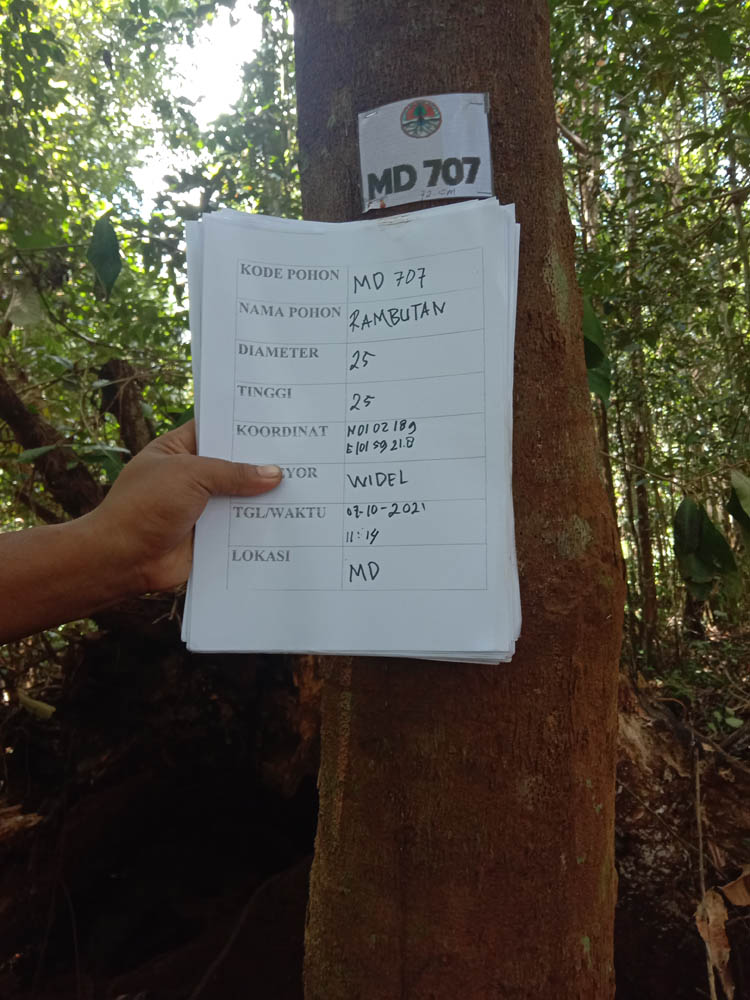 MD 707
72 cm
KODE POHON MD 707
NAMA POHON RAMBUTAN
DIAMETER 25
TINGGI 25
KOORDINAT N01 02 189
E101 59 21.8
YOR WIDEL
TGL/WAKTU 07-10-2021
11:14
LOKASI MD